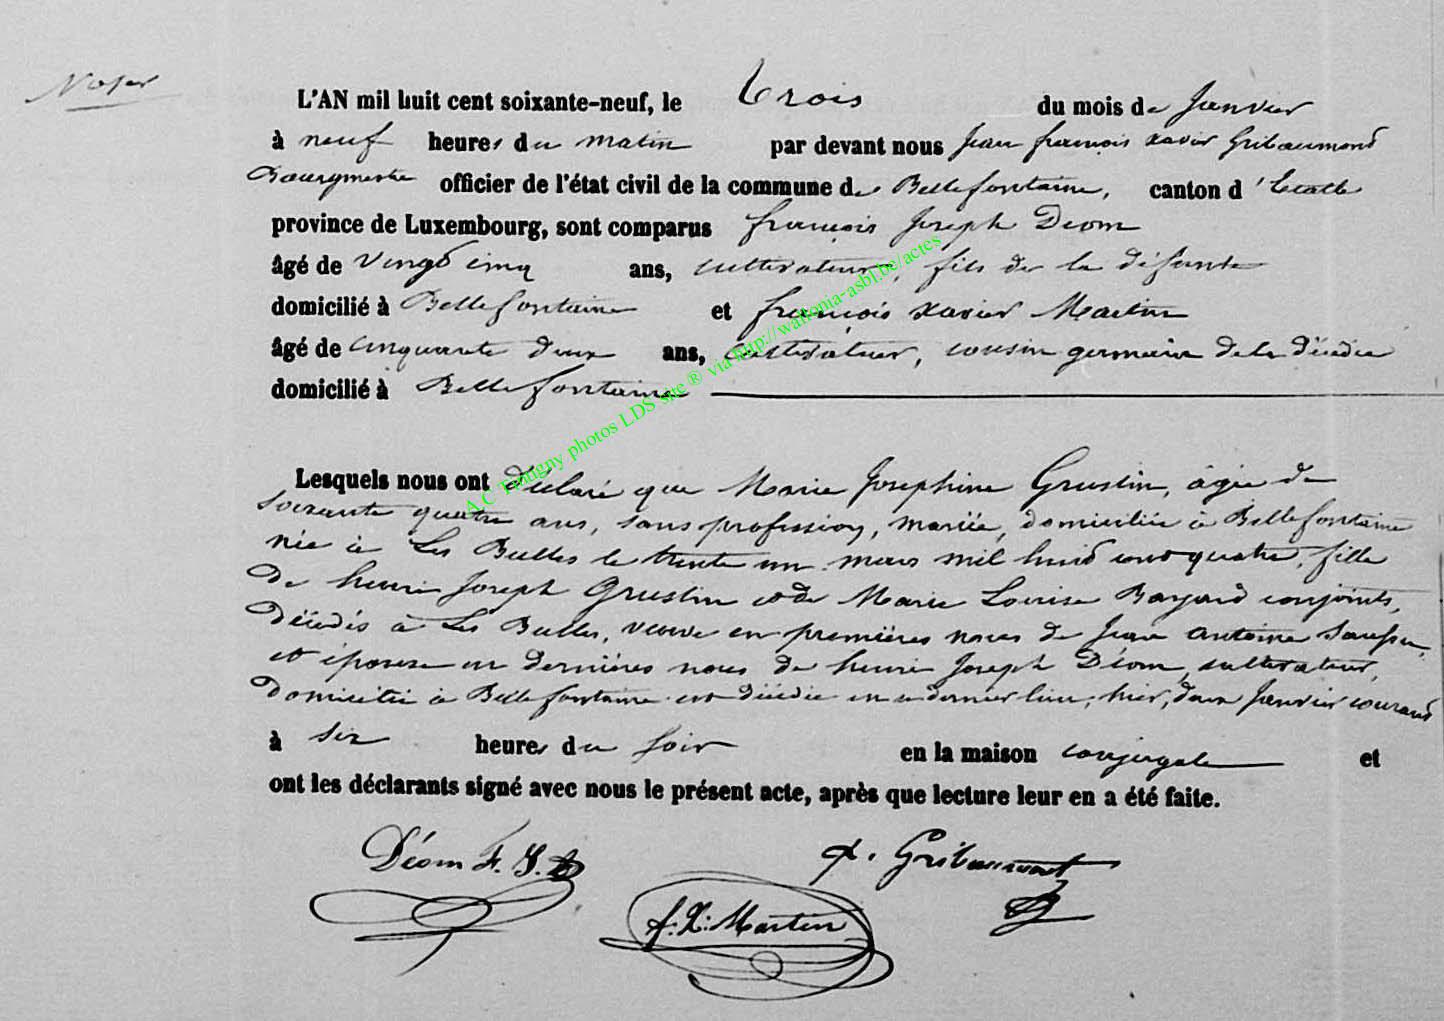 Noter
L'AN mil huit cent soixante-neuf, le trois du mois de Janvier
à neuf heures du matin par devant nous Jean françois xavier Gribaumont
Bourgmestre officier de l'état civil de la commune de Bellefontaine, canton d'Etalle
province de Luxembourg, sont comparus françois Joseph Déom
âgé de vingt cinq ans, cultivateur, fils de la défunte
domicilié à Bellefontaine et françois xavier Martin
âgé de cinquante deux ans, cultivateur, cousin germain de la décédée
domicilié à Bellefontaine
Lesquels nous ont déclaré que Marie Josephine Grustin, âgée de
soixante quatre ans, sans profession, mariée, domiciliée à Bellefontaine
née à Les Bulles le trente un mars mil huit cent quatre, fille
de henri Joseph Grustin et de Marie Louise Bayard conjoints,
décédés à Les Bulles, veuve en premières noces de Jean antoine
et épouse en dernières noces de henri Joseph Déom, cultivateur,
domicilié à Bellefontaine est décédée en ce dernier lieu, hier, deux Janvier courant
à six heures du soir en la maison conjugale et
ont les déclarants signé avec nous le présent acte, après que lecture leur en a été faite.
Déom F. J.
X. Gribaumont
f. X. Martin
A.C Tintigny photos LDS site ® via http://wallonia-asbl.be/actes